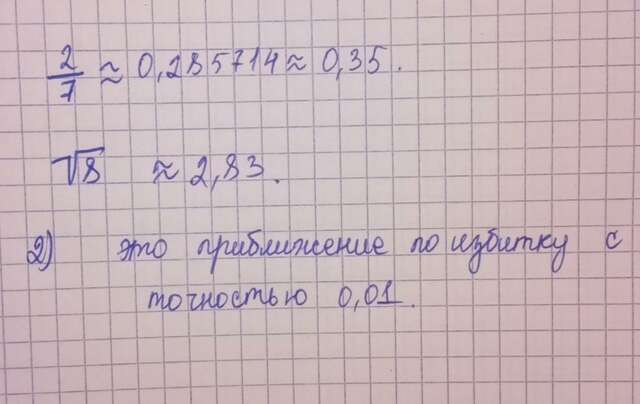 2/7 ≈ 0,285714 ≈ 0,35.
√8 ≈ 2,83.
2) это приближение по избитку с
точностью 0,01.